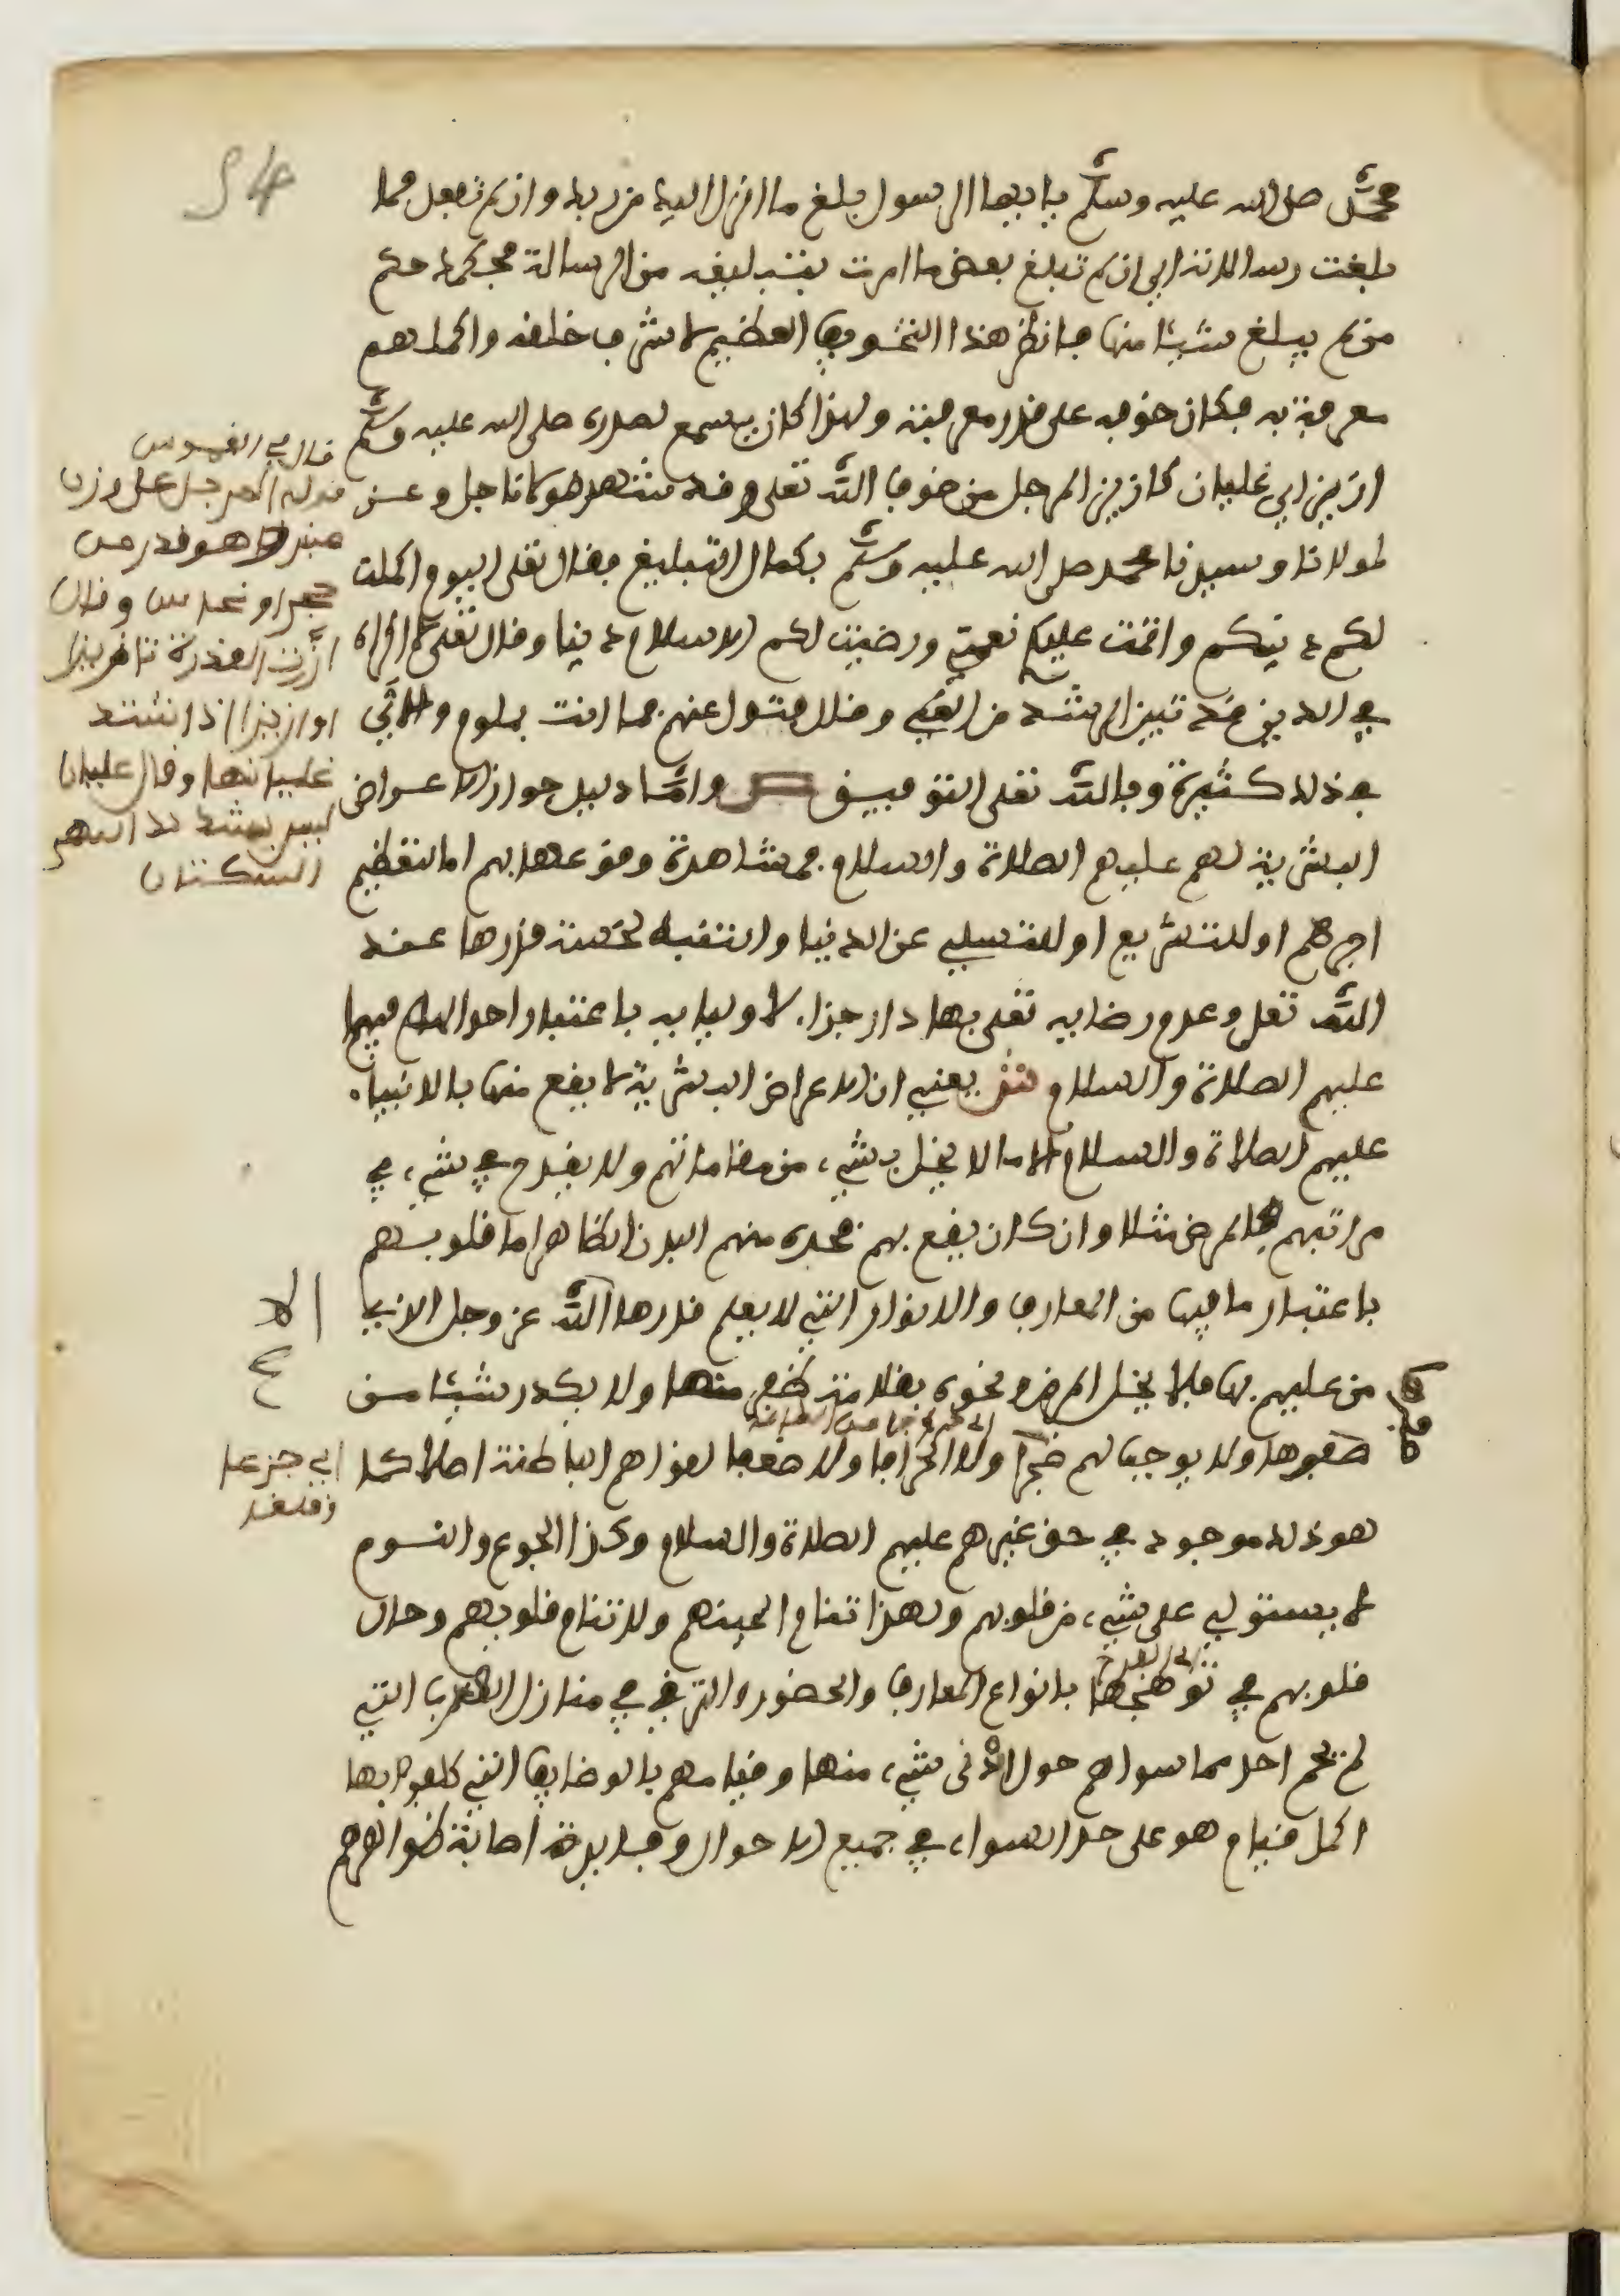 54
محمد صلى الله عليه وسلم يا ايها الرسول بلغ ما انزل اليك من ربك وان لم تفعل فما
بلغت رسالاته اي ان لم تبلغ بعض ما امرت بتبليغه من الرسالة فحكمك حكم
من لم يبلغ شيئا منها فانظر هذا التخويف العظيم لاشرف خلقه واكملهم
معرفة به فكان خوفه على قدر معرفته ولهذا كان يسمع لصدره صلى الله عليه وسلم
ازيز اي غليان كازيز المرجل من خوف الله تعلى وقد شهد مولانا جل وعز
لمولانا وسيدنا محمد صلى الله عليه وسلم بكمال التبليغ فقال تعلى اليوم اكملت
لكم دينكم واتممت عليكم نعمتي ورضيت لكم الاسلام دينا وقال تعلى لا اكراه
في الدين قد تبين الرشد من الغي وقال فتول عنهم فما انت بملوم والاي
في ذلك كثيرة وبالله تعلى التوفيق ص واما دليل جواز الاعراض
البشرية لهم عليهم الصلاة والسلام فمشاهدة وقوعها بهم اما لتعظيم
اجرهم او للتشريع او للتسلي عن الدنيا والتنبيه لخسة قدرها عند
الله تعلى وعدم رضايه تعلى بها دار جزاء لاوليايه باعتبار احوالهم فيها
عليهم الصلاة والسلام ش يعني ان الاعراض البشرية لا يقع منها بالانبياء
عليهم الصلاة والسلام الا ما لا يخل بشيء من مقاماتهم ولا يقدح في شيء في
مراتبهم فالمرض مثلا وان كان يقع بهم فحده منهم البدن الظاهر اما قلوبهم
باعتبار ما فيها من المعارف والانوار التي لا يعلم قدرها الله عز وجل الذي
الا
من عليهم بها فلا يخل المرض ونحوه بقلامة ظفر منها ولا يكدر شيئا من
صفوها ولا يوجب لهم ضجرا ولا انحرافا ولا ضعفا لقواهم الباطنة اصلا كما
اي جزعا
وقلقا
هو ذلك موجود في حق غيرهم عليهم الصلاة والسلام وكذا الجوع والنوم
لا يستولي على شيء من قلوبهم ولهذا تنام اعينهم ولا تنام قلوبهم وحال
قلوبهم في توهجها بانواع المعارف والحضور والترقي في منازل القرب التي
لم يحم احد مما سواهم حول ادنى شيء منها وقيامهم بالوظايف التي كلفوا بها
اكمل قيام هو على حد السواء في جميع الاحوال وفايدة اصابة ظواهرهم
قال في القاموس
قوله المرجل على وزن
منبر هو قدر من
حجر او نحاس وقال
ازت القدرة تاز ازيزا
او ازيزا اذا اشتد
غليانها وقال غليان